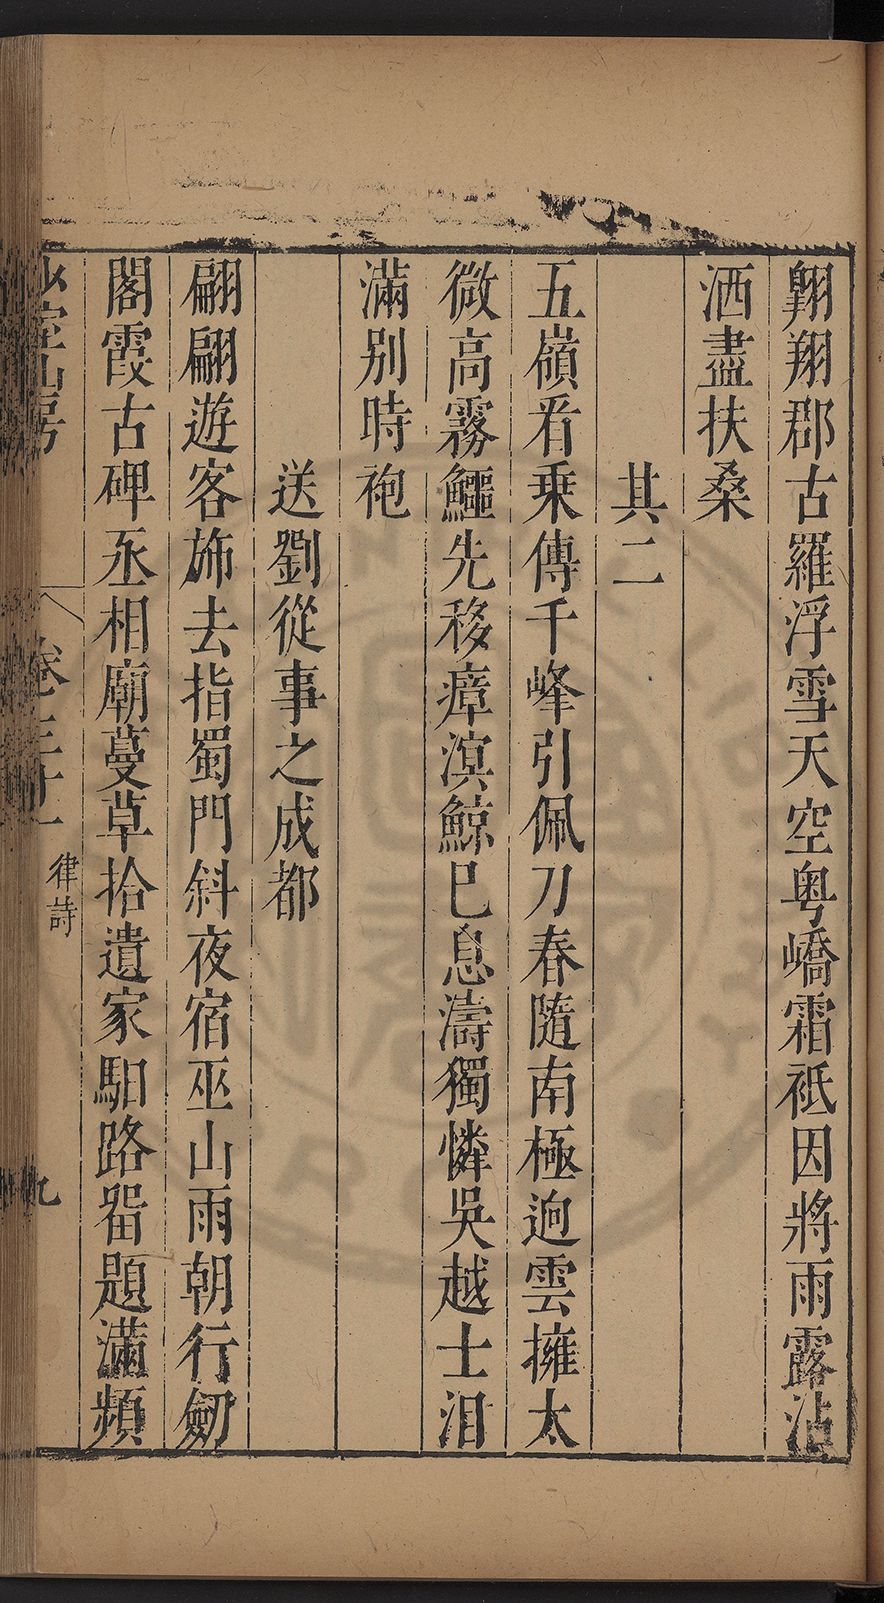 翱翔郡古羅浮雪天空粤嶠霜祗因將雨露沾
洒盡扶桑
其二
五嶺看乗傳千峰引佩刀春隨南極逈雲擁太
微高霧鱷先移瘴溟鯨巳息濤獨憐吳越士泪
滿别時袍
送劉從事之成都
翩翩遊客斾去指蜀門斜夜宿巫山雨朝行劒
閣霞古碑丞相廟蔓草拾遺家馹路畱題滿頻
少室山房
卷三十一
律詩
九